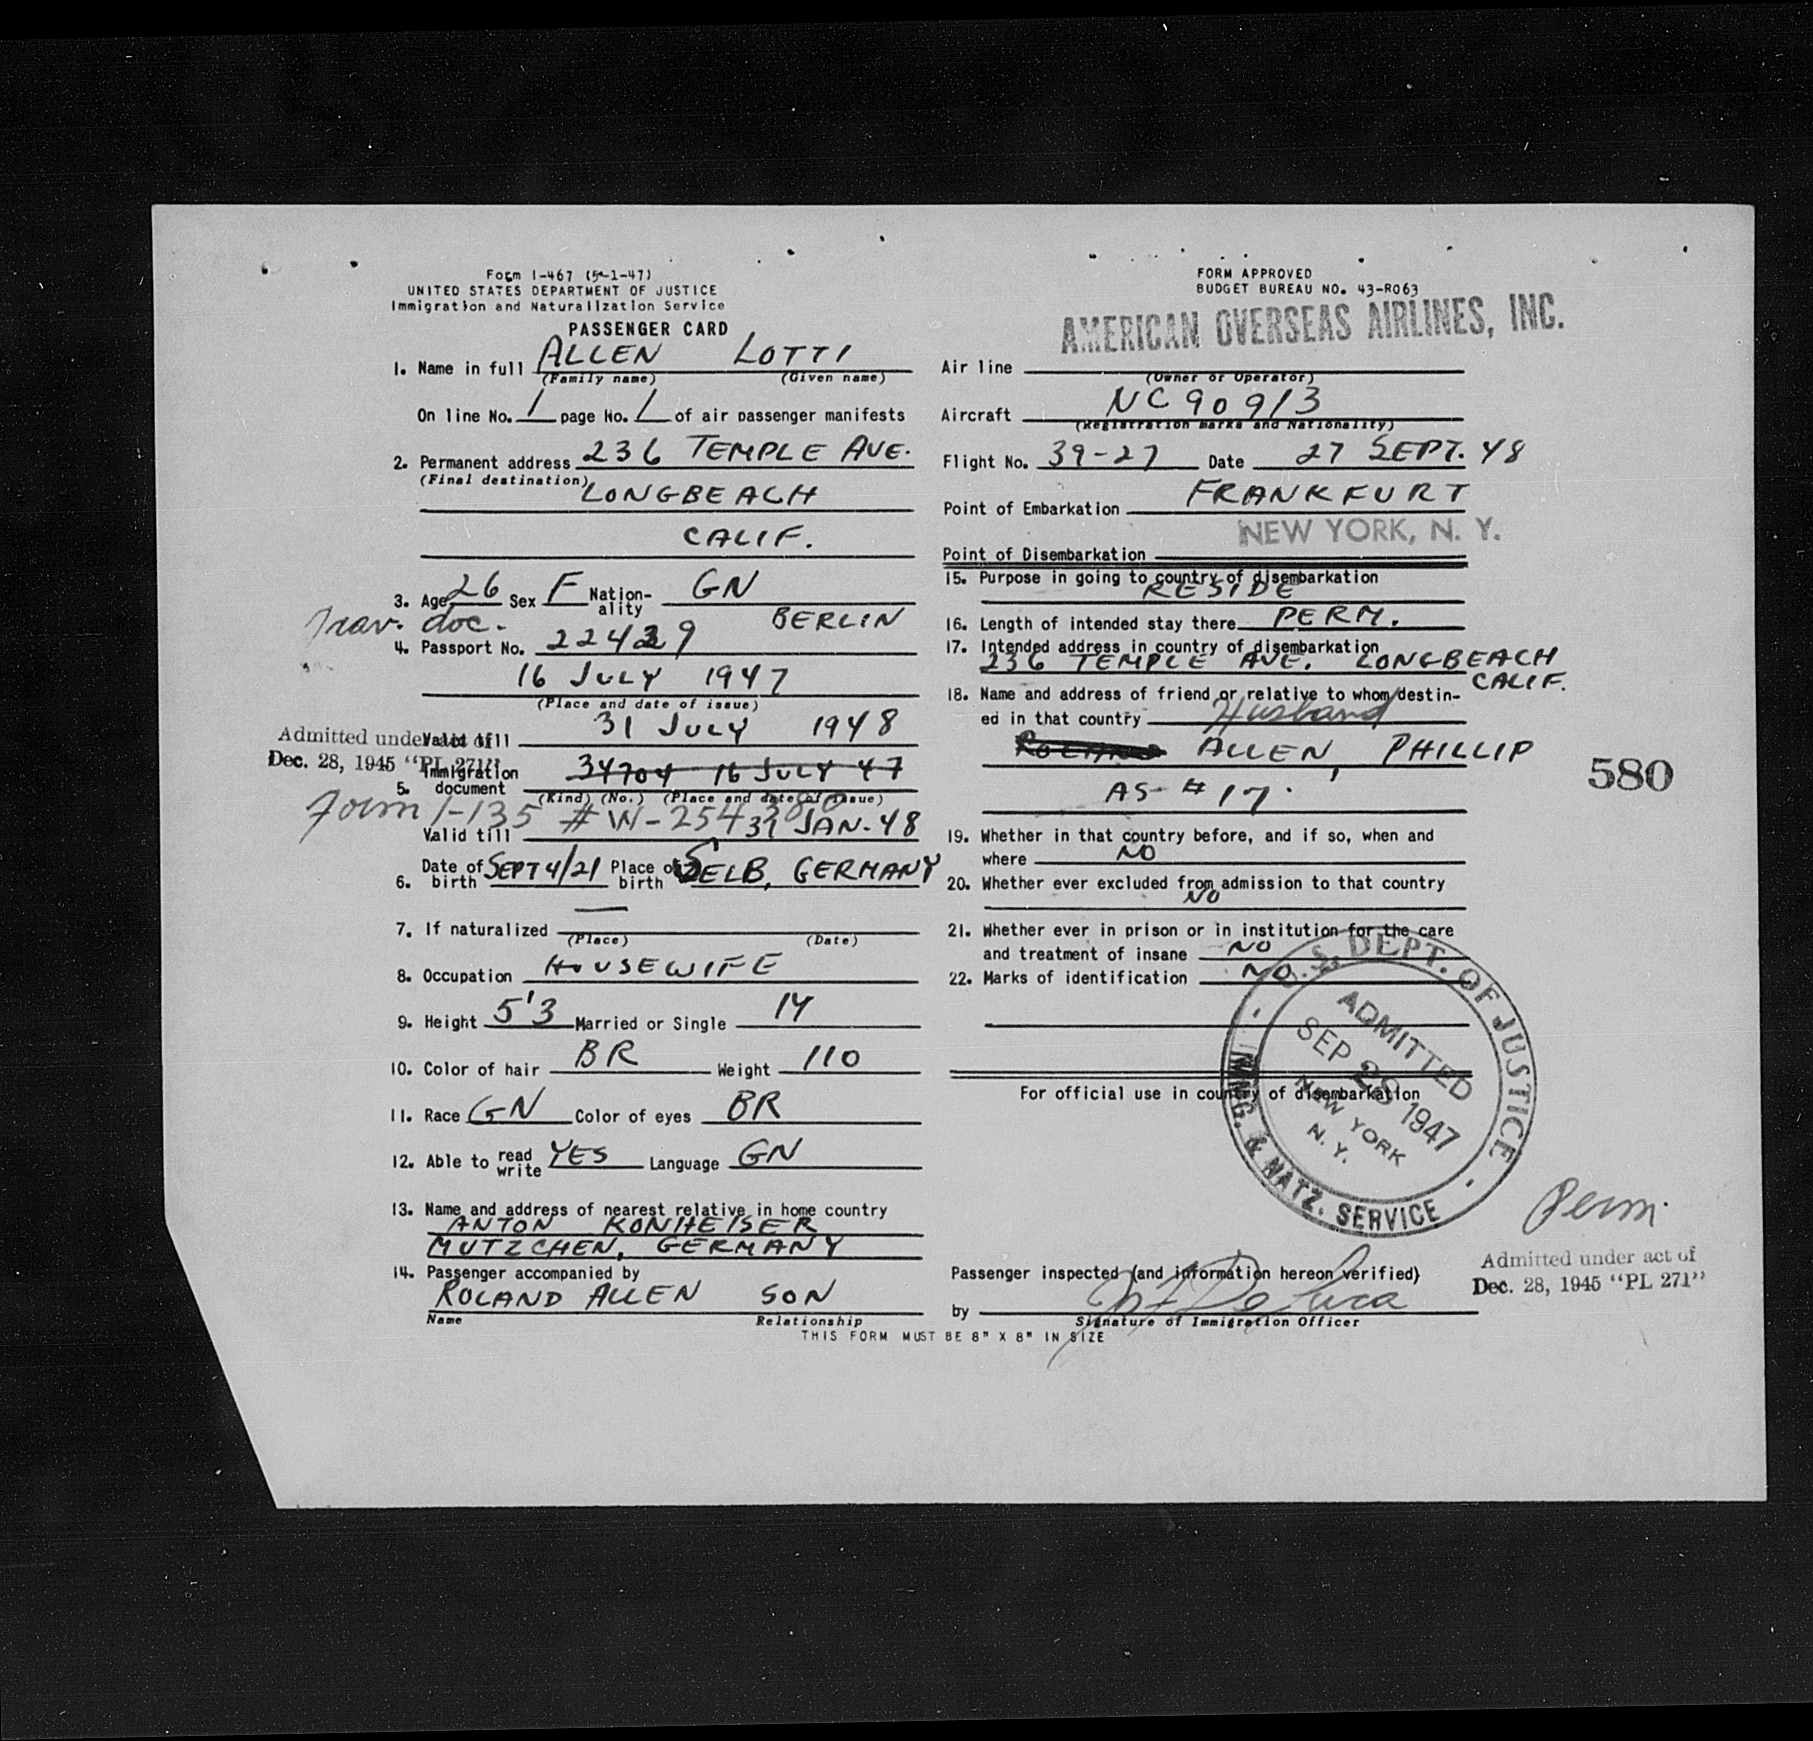 Form I-467 (5-1-47)
UNITED STATES DEPARTMENT OF JUSTICE
Immigration and Naturalization Service
PASSENGER CARD
1. Name in full ALLEN LOTTI
(Family name) (Given name)
On line No. 1 page No. 1 of air passenger manifests
2. Permanent address 236 TEMPLE AVE.
(Final destination)
LONGBEACH
CALIF.
3. Age 26 Sex F Nation-ality GN
Trav. doc. BERLIN
4. Passport No. 22439
16 JULY 1947
(Place and date of issue)
Valid till 31 JULY 1948
Admitted under act of
Dec. 28, 1945 "PL 271"
5. Immigration document 34704 16 JULY 47
(Kind) (No.) (Place and date of issue)
Form I-135 # W-254380
Valid till 31 JAN-48
6. Date of birth SEPT 4/21 Place of birth SELB, GERMANY
7. If naturalized —
(Place) (Date)
8. Occupation HOUSEWIFE
9. Height 5'3 Married or Single M
10. Color of hair BR Weight 110
11. Race GN Color of eyes BR
12. Able to read write YES Language GN
13. Name and address of nearest relative in home country
ANTON KONHEISER
MUTZCHEN, GERMANY
14. Passenger accompanied by
ROLAND ALLEN SON
Name Relationship
THIS FORM MUST BE 8" X 8" IN SIZE
FORM APPROVED
BUDGET BUREAU NO. 43-R063
AMERICAN OVERSEAS AIRLINES, INC.
Air line
(Owner or Operator)
Aircraft NC 90913
(Registration marks and Nationality)
Flight No. 39-27 Date 27 SEPT. 48
Point of Embarkation FRANKFURT
Point of Disembarkation NEW YORK, N. Y.
15. Purpose in going to country of disembarkation
RESIDE
16. Length of intended stay there PERM.
17. Intended address in country of disembarkation
236 TEMPLE AVE. LONGBEACH
CALIF.
18. Name and address of friend or relative to whom destin-
ed in that country Husband
ROLAND ALLEN, PHILLIP
AS # 17.
580
19. Whether in that country before, and if so, when and
where NO
20. Whether ever excluded from admission to that country
NO
21. Whether ever in prison or in institution for the care
and treatment of insane NO
22. Marks of identification NO
For official use in country of disembarkation
U.S. DEPT. OF JUSTICE
IMMG. & NATZ. SERVICE
ADMITTED
SEP 28 1947
NEW YORK
N. Y.
Perm.
Admitted under act of
Dec. 28, 1945 "PL 271"
Passenger inspected (and information hereon verified)
by De Luca
Signature of Immigration Officer